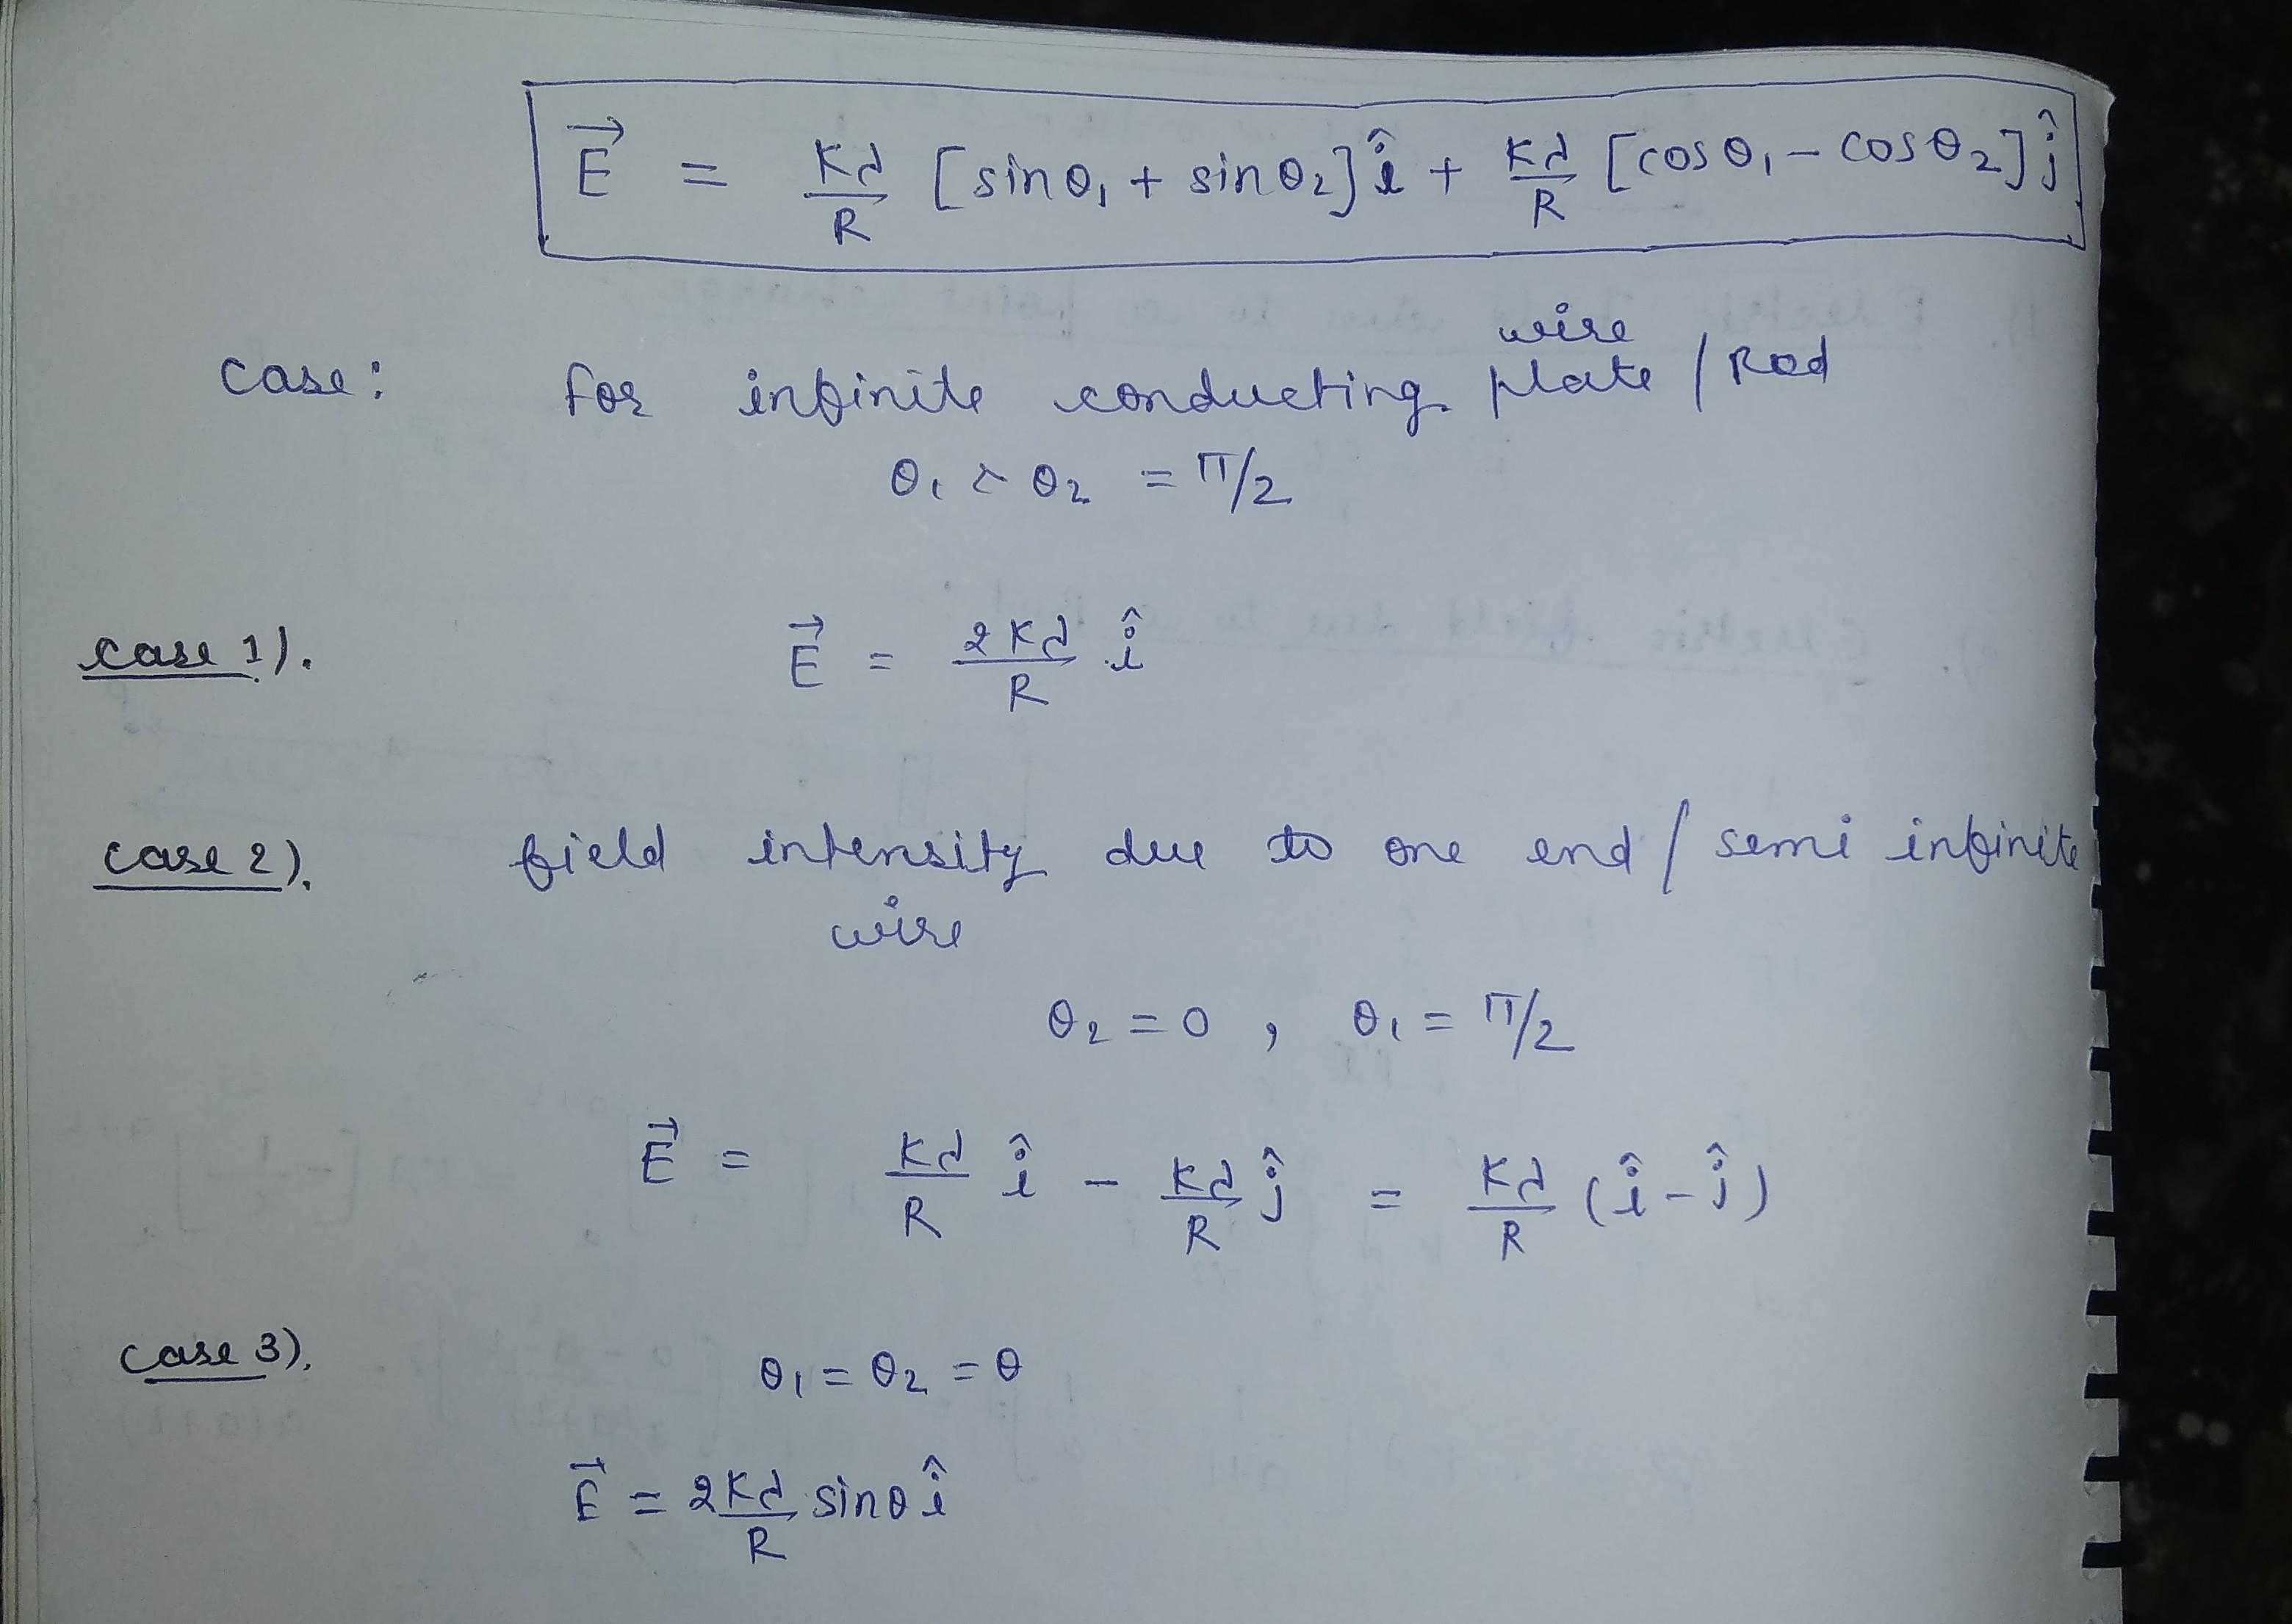 E⃗ = Kλ/R [sinθ₁ + sinθ₂] î + Kλ/R [cosθ₁ − cosθ₂] ĵ
case: for infinite conducting plate / Rod
wire
θ₁ θ₂ = π/2
case 1). E⃗ = 2Kλ/R î
case 2). field intensity due to one end / semi infinite
wire
θ₂ = 0 , θ₁ = π/2
E⃗ = Kλ/R î − Kλ/R ĵ = Kλ/R (î − ĵ)
case 3). θ₁ = θ₂ = θ
E⃗ = 2Kλ/R sinθ î